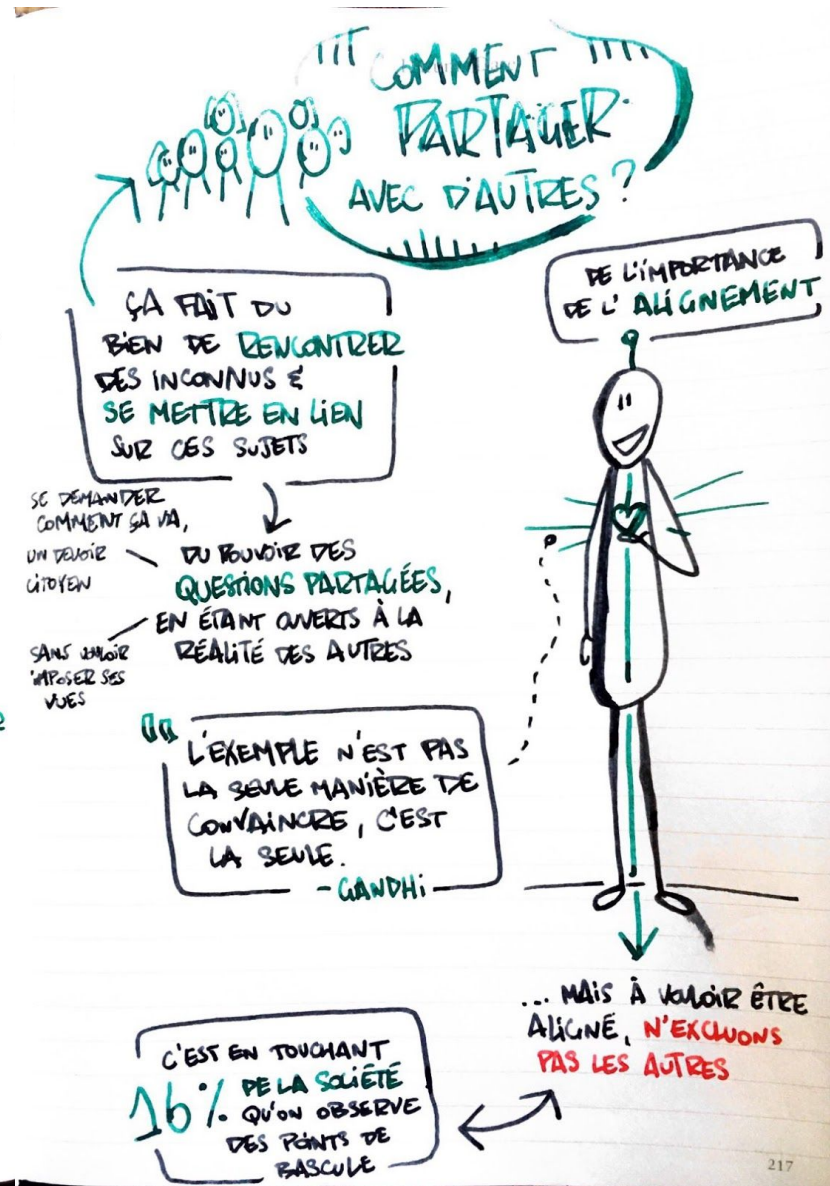 COMMENT
PARTAGER
AVEC D'AUTRES ?
DE L'IMPORTANCE
DE L' ALIGNEMENT
ÇA FAIT DU
BIEN DE RENCONTRER
DES INCONNUS &
SE METTRE EN LIEN
SUR CES SUJETS
SE DEMANDER
COMMENT ÇA VA,
UN DEVOIR
CITOYEN
DU POUVOIR DES
QUESTIONS PARTAGÉES,
EN ÉTANT OUVERTS À LA
RÉALITÉ DES AUTRES
SANS VOULOIR
IMPOSER SES
VUES
"L'EXEMPLE N'EST PAS
LA SEULE MANIÈRE DE
CONVAINCRE, C'EST
LA SEULE.
- GANDHI
... MAIS À VOULOIR ÊTRE
ALIGNÉ, N'EXCLUONS
PAS LES AUTRES
C'EST EN TOUCHANT
16% DE LA SOCIÉTÉ
QU'ON OBSERVE
DES POINTS DE
BASCULE
217